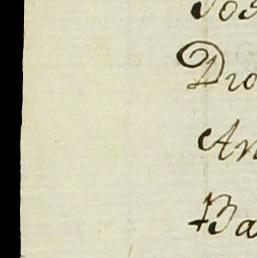 Jos
Dio
An
Ba